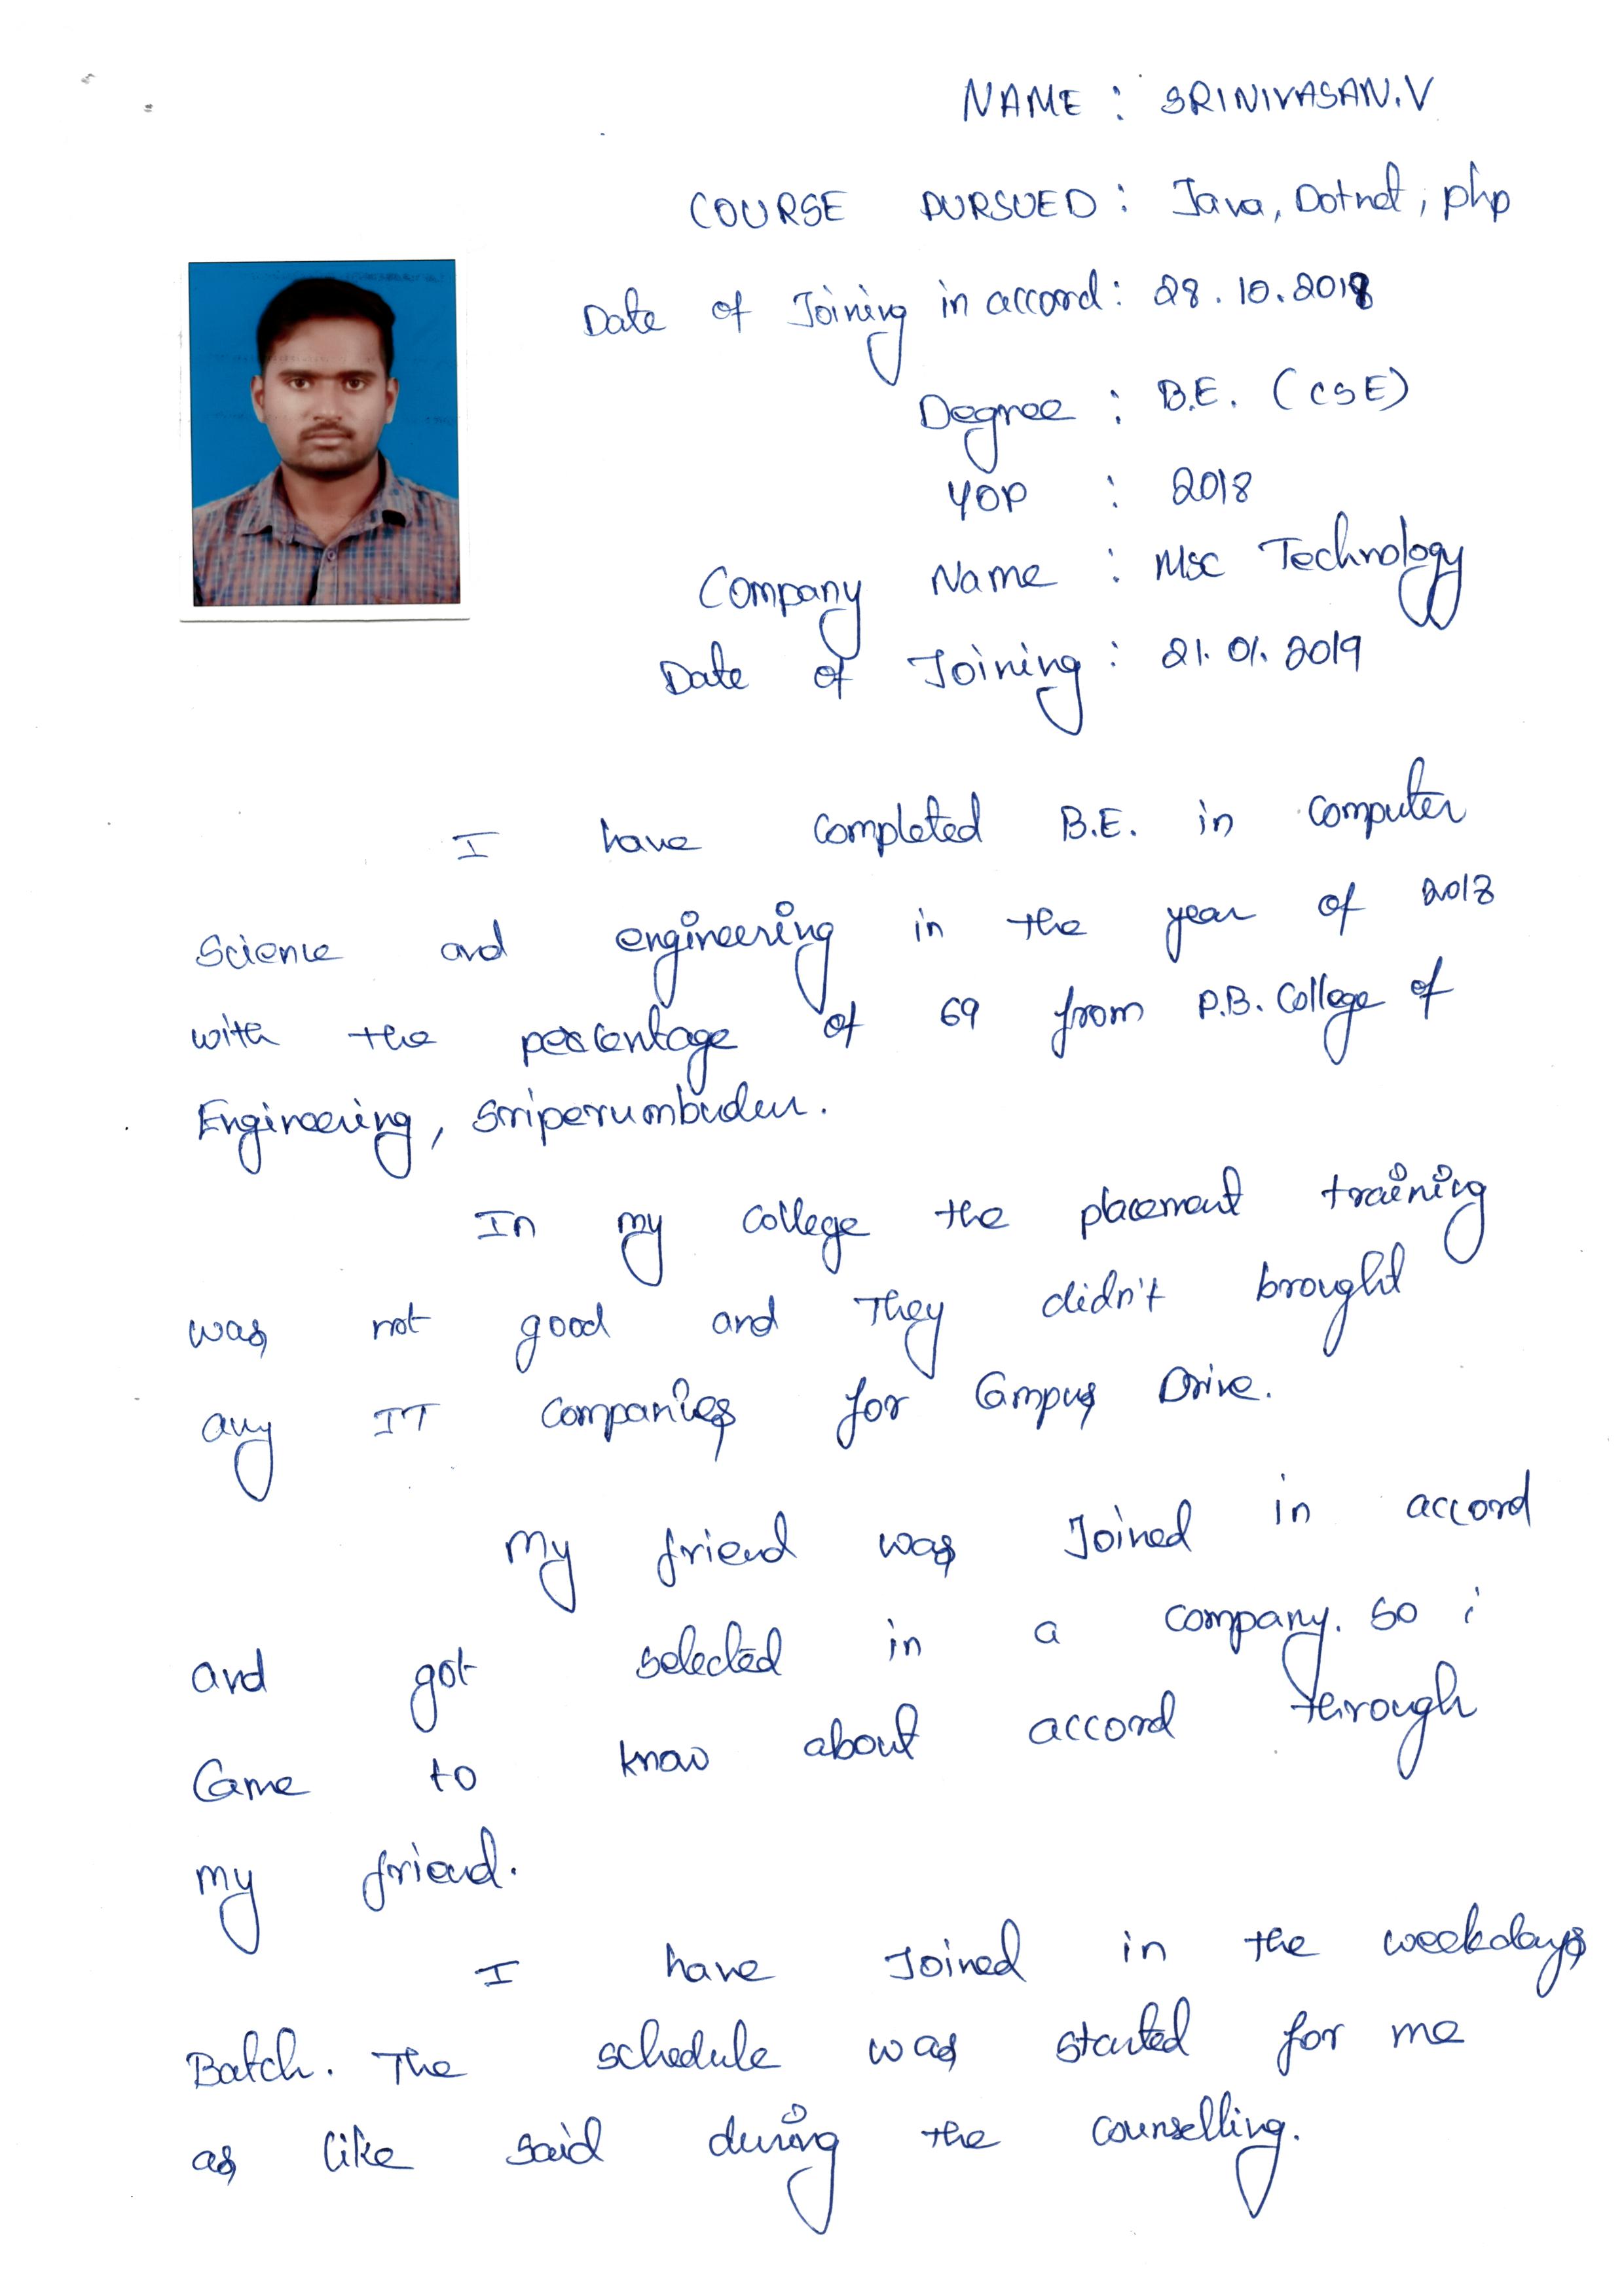 NAME : SRINIVASAN.V
COURSE PURSUED : Java, Dotnet, php
Date of Joining in accord : 28.10.2018
Degree : B.E. (CSE)
YOP : 2018
Company Name : Msc Technology
Date of Joining : 21.01.2019
I have completed B.E. in computer
Science and engineering in the year of 2018
with the percentage of 69 from P.B. College of
Engineering, Sriperumbudur.
In my college the placement training
was not good and They didn't brought
any IT companies for Campus Drive.
My friend was Joined in accord
and got selected in a company. So i
Came to know about accord through
my friend.
I have Joined in the weekdays
Batch. The schedule was started for me
as like said during the counselling.